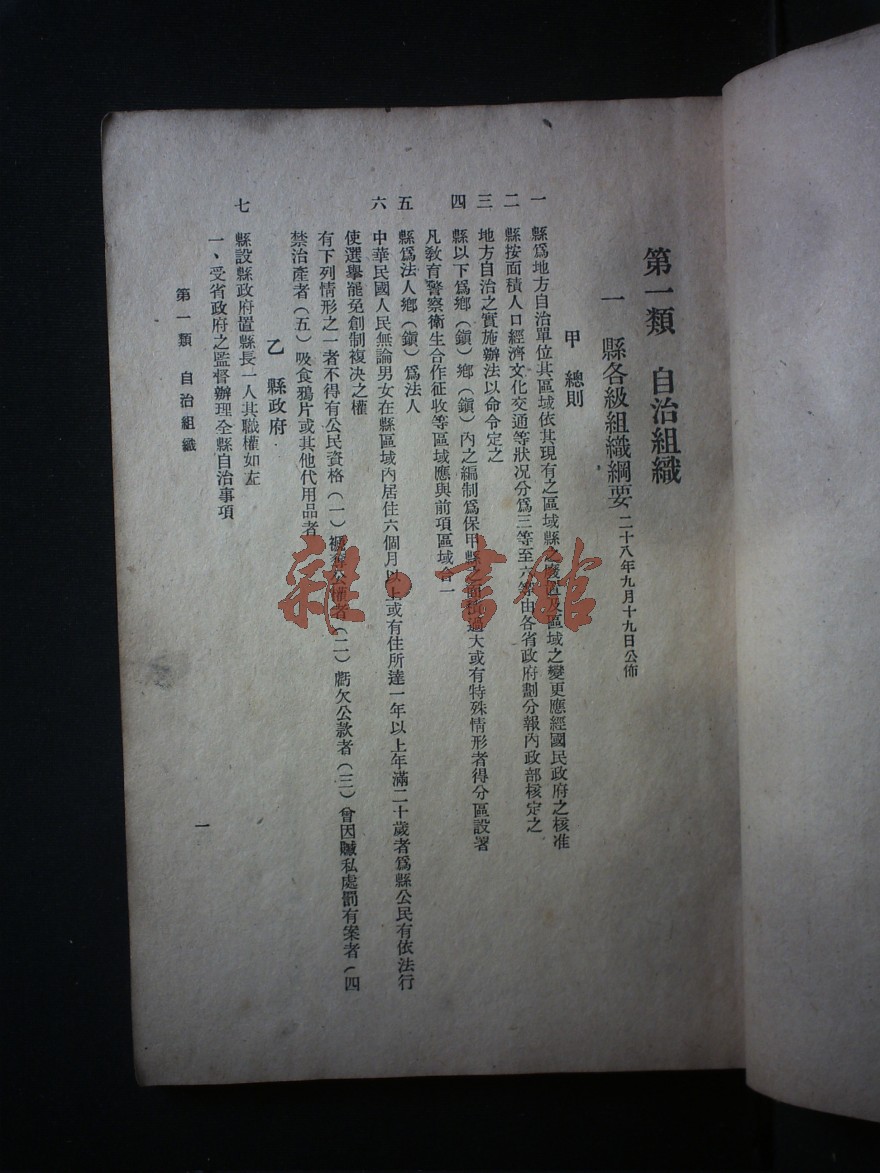 第一類　自治組織
一　縣各級組織綱要　二十八年九月十九日公佈
甲　總則
一　縣爲地方自治單位其區域依其現有之區域縣之廢置及區域之變更應經國民政府之核准
二　縣按面積人口經濟文化交通等狀況分爲三等至六等由各省政府劃分報內政部核定之
三　地方自治之實施辦法以命令定之
四　縣以下爲鄉（鎭）鄉（鎭）內之編制爲保甲縣之面積過大或有特殊情形者得分區設署
凡敎育警察衞生合作征收等區域應與前項區域合一
五　縣爲法人鄉（鎭）爲法人
六　中華民國人民無論男女在縣區域內居住六個月以上或有住所達一年以上年滿二十歲者爲縣公民有依法行
使選舉罷免創制複决之權
有下列情形之一者不得有公民資格（一）褫奪公權者（二）虧欠公款者（三）曾因贓私處罰有案者（四
禁治產者（五）吸食鴉片或其他代用品者
乙　縣政府
七　縣設縣政府置縣長一人其職權如左
一、受省政府之監督辦理全縣自治事項
第一類　自治組織
一
雜·書館